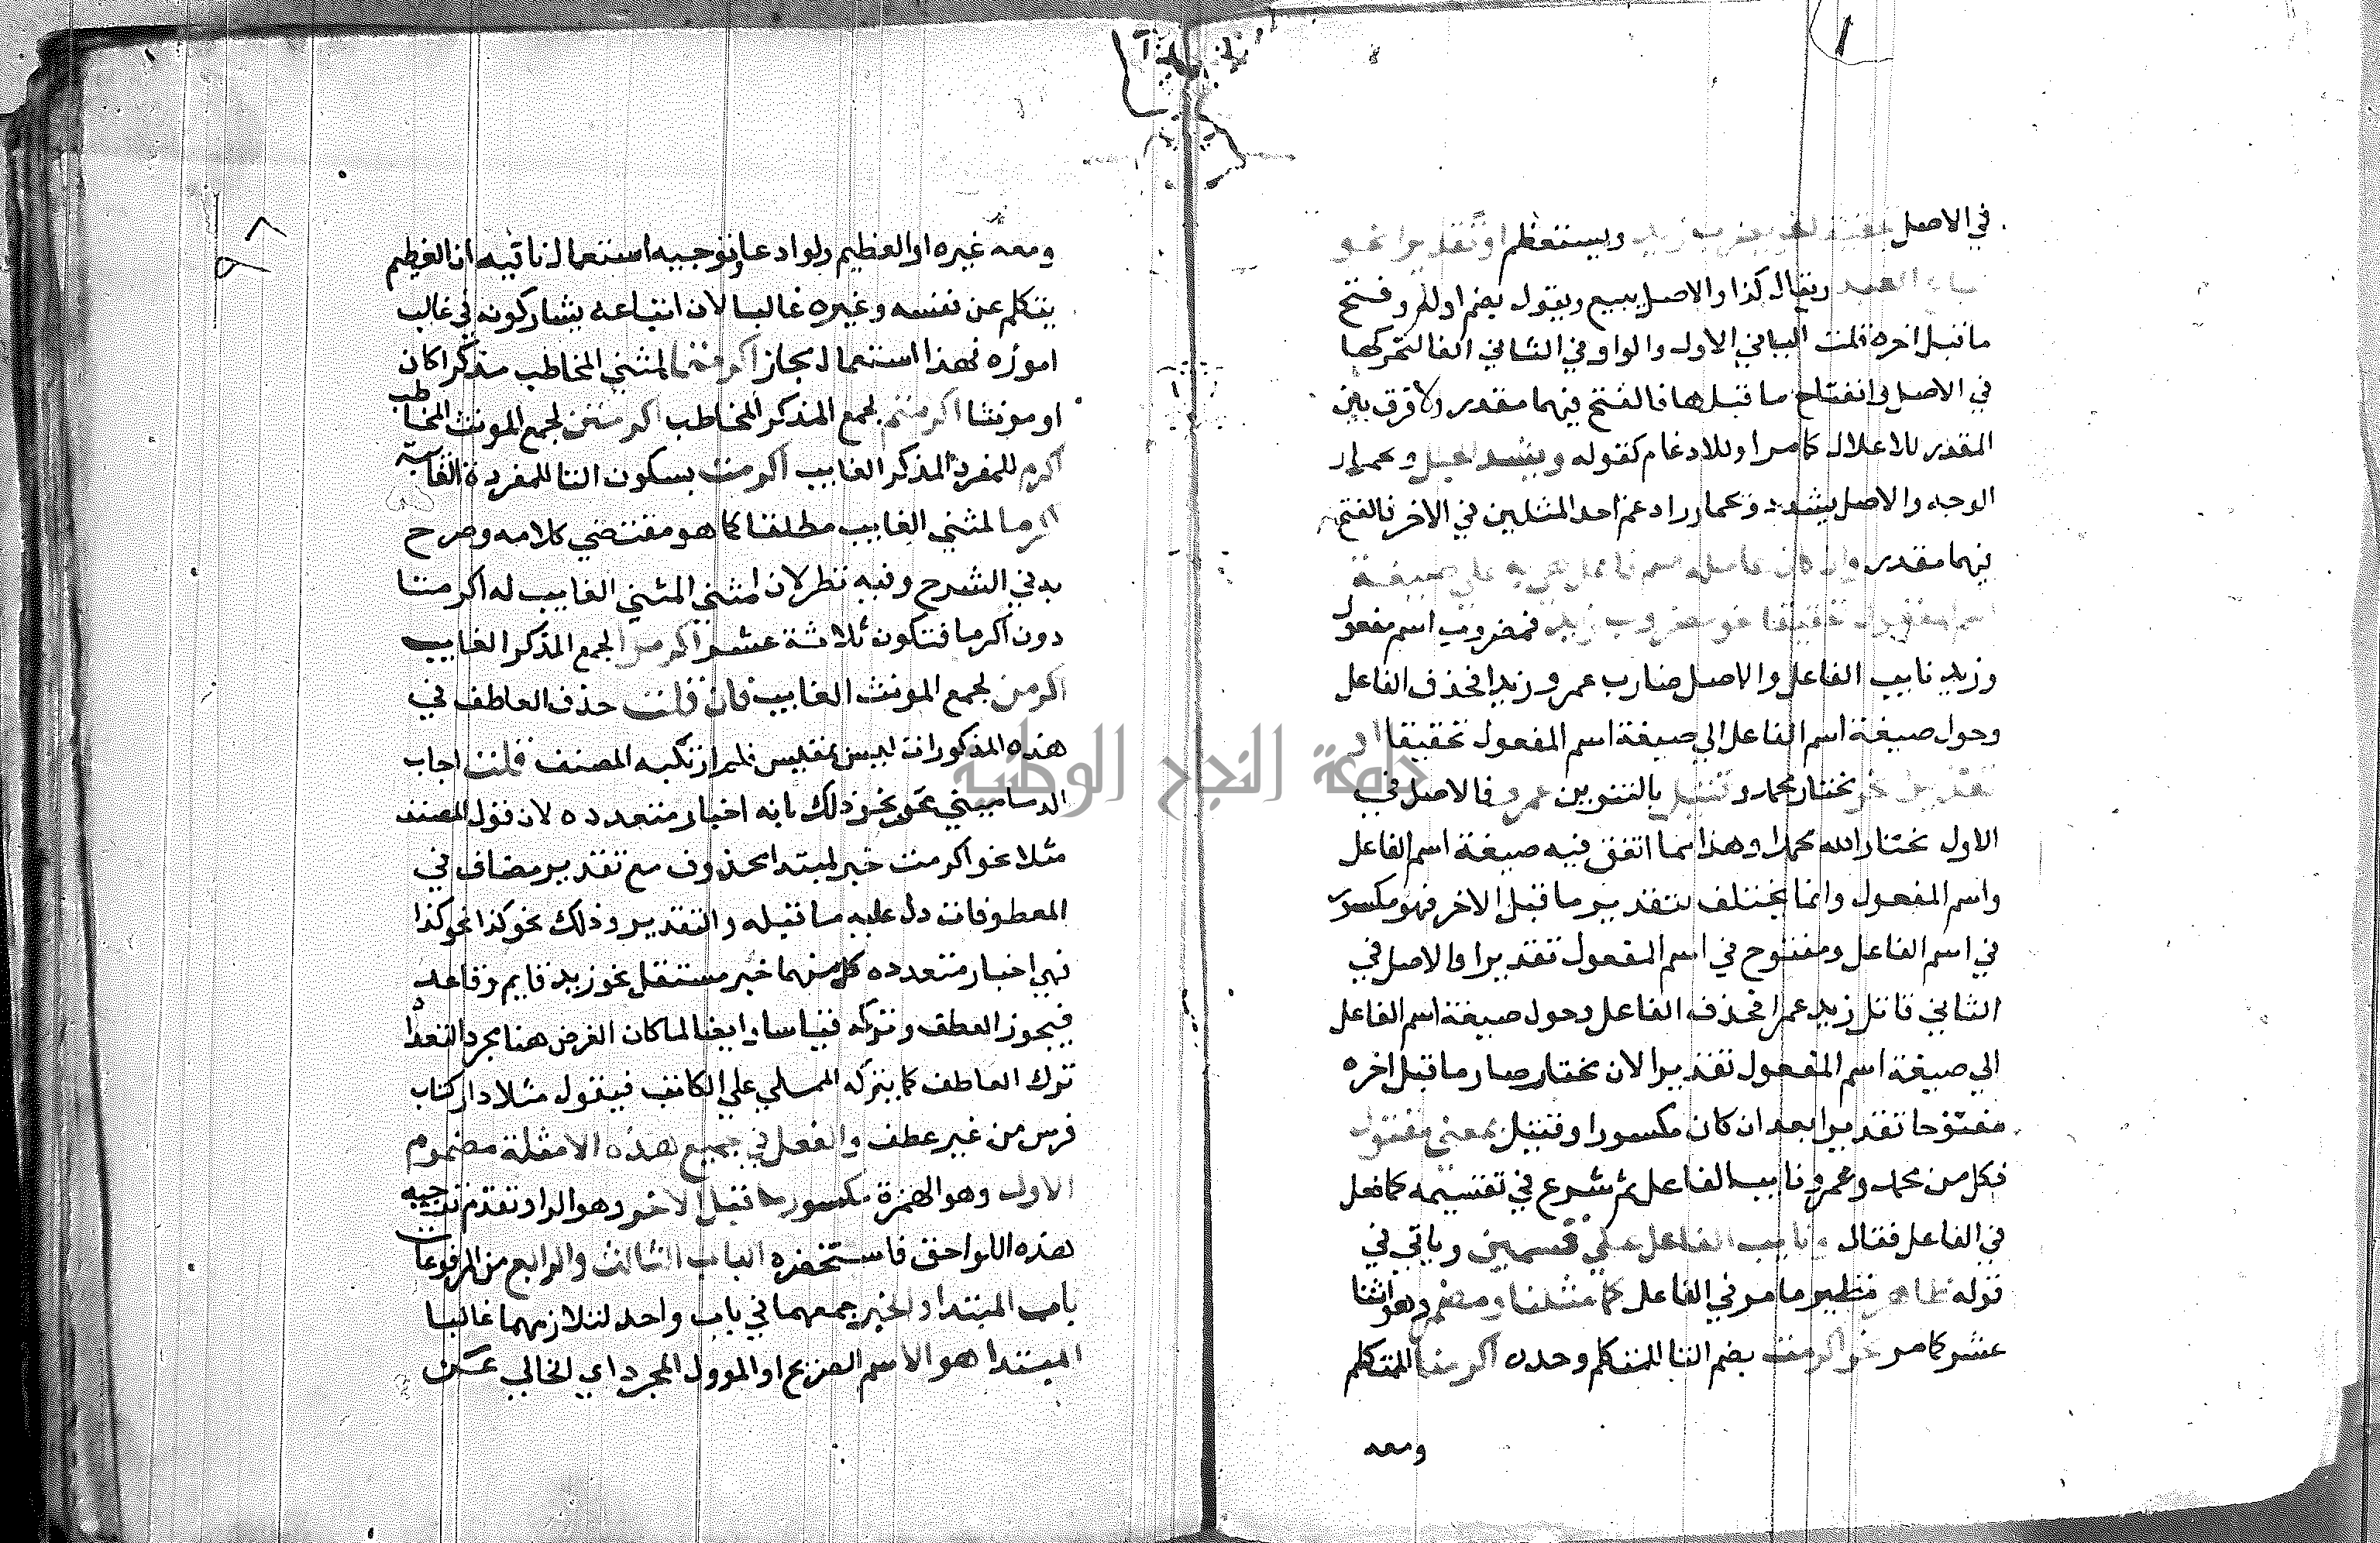 في الاصل نحو يضرب زيد ويستعظم او تقديرا نحو
يباع العبد ويقال كذا والاصل يبيع ويقول بضم اوله وفتح
ما قبل اخره قلبت اليا في الاول والواو في الثاني الفا لتحركها
في الاصل وانفتاح ما قبلها فالفتح فيهما مقدر ولا فرق بين
المقدر للاعلال كما مر او للادغام كقوله ويشد
الوجه والاصل يشدد وادغم احد المثلين في الاخر فالفتح
فيهما مقدر وان كان عامله اسم فاعل على صيغة
اسم المفعول تحقيقا نحو مضروب زيد فمضروب اسم مفعول
وزيد نايب الفاعل والاصل ضارب عمرو زيدا فحذف الفاعل
وحول صيغة اسم الفاعل الي صيغة اسم المفعول تحقيقا او
تقديرا نحو مختار محمد وقتيل بالتنوين عمرو فالاصل في
الاول مختار الله محمدا وهذا مما اتفق فيه صيغة اسم الفاعل
واسم المفعول وانما يختلف بتقدير ما قبل الاخر فهو مكسور
في اسم الفاعل ومفتوح في اسم المفعول تقديرا والاصل في
الثاني قاتل زيد عمرا فحذف الفاعل وحول صيغة اسم الفاعل
الي صيغة اسم المفعول تقديرا لان مختار صار ما قبل اخره
مفتوحا تقديرا بعد ان كان مكسورا وقتيل بمعني مقتول
فكل من محمد وعمرو نايب الفاعل ثم شرع في تقسيمه كما فعل
في الفاعل فقال ونايب الفاعل علي قسمين وياتي في
قوله ظاهر نظير ما مر في الفاعل كما مثلنا ومضمر وهو اثنا
عشر كما مر نحو اكرمت بضم التا للمتكلم وحده اكرمنا للمتكلم
ومعه
ومعه غيره او العظيم ولو ادعا وتوجيه استعمال نا فيه ان العظيم
يتكلم عن نفسه وغيره غالبا لان اتباعه يشاركونه في غالب
اموره فهذا استعمال مجاز اكرمتما لمثني المخاطب مذكرا كان
او مونثا اكرمتم لجمع المذكر المخاطب اكرمتن لجمع المونث المخاطب
اكرم للمفرد المذكر الغايب اكرمت بسكون التا للمفردة الغايبة
اكرما لمثني الغايب مطلقا كما هو مقتضي كلامه وصرح
به في الشرح وفيه نظر لان لمثني المثني الغايب له اكرمتا
دون اكرما فتكون ثلاثة عشر اكرموا لجمع المذكر الغايب
اكرمن لجمع المونث الغايب فان قلت حذف العاطف في
هذه المذكورات ليس بمقيس فلم ارتكبه المصنف قلت اجاب
الدماميني عن نحو ذلك بانه اخبار متعدده لان قول المصنف
مثلا نحو اكرمت خبر لمبتدا محذوف مع تقدير مضاف في
المعطوفات دل عليه ما قبله والتقدير وذلك نحو كذا نحو كذا
فهي اخبار متعدده كل منهما خبر مستقل نحو زيد قايم وقاعد
فيجوز العطف وتركه قياسا وايضا لما كان الغرض هنا مجرد التعداد
ترك العاطف كما يتركه المملي علي الكاتب فيقول مثلا دار كتاب
فرس من غير عطف والفعل في جميع هذه الامثلة مضموم
الاول وهو الهمزة مكسور ما قبل الاخر وهو الرا وتقدم توجيه
هذه اللواحق فاستحضره الباب الثالث والرابع من المرفوعات
باب المبتدا والخبر جمعهما في باب واحد لتلازمهما غالبا
المبتدا هو الاسم الصريح او الموول المجرد اي الخالي عن
جامعة النجاح الوطنية